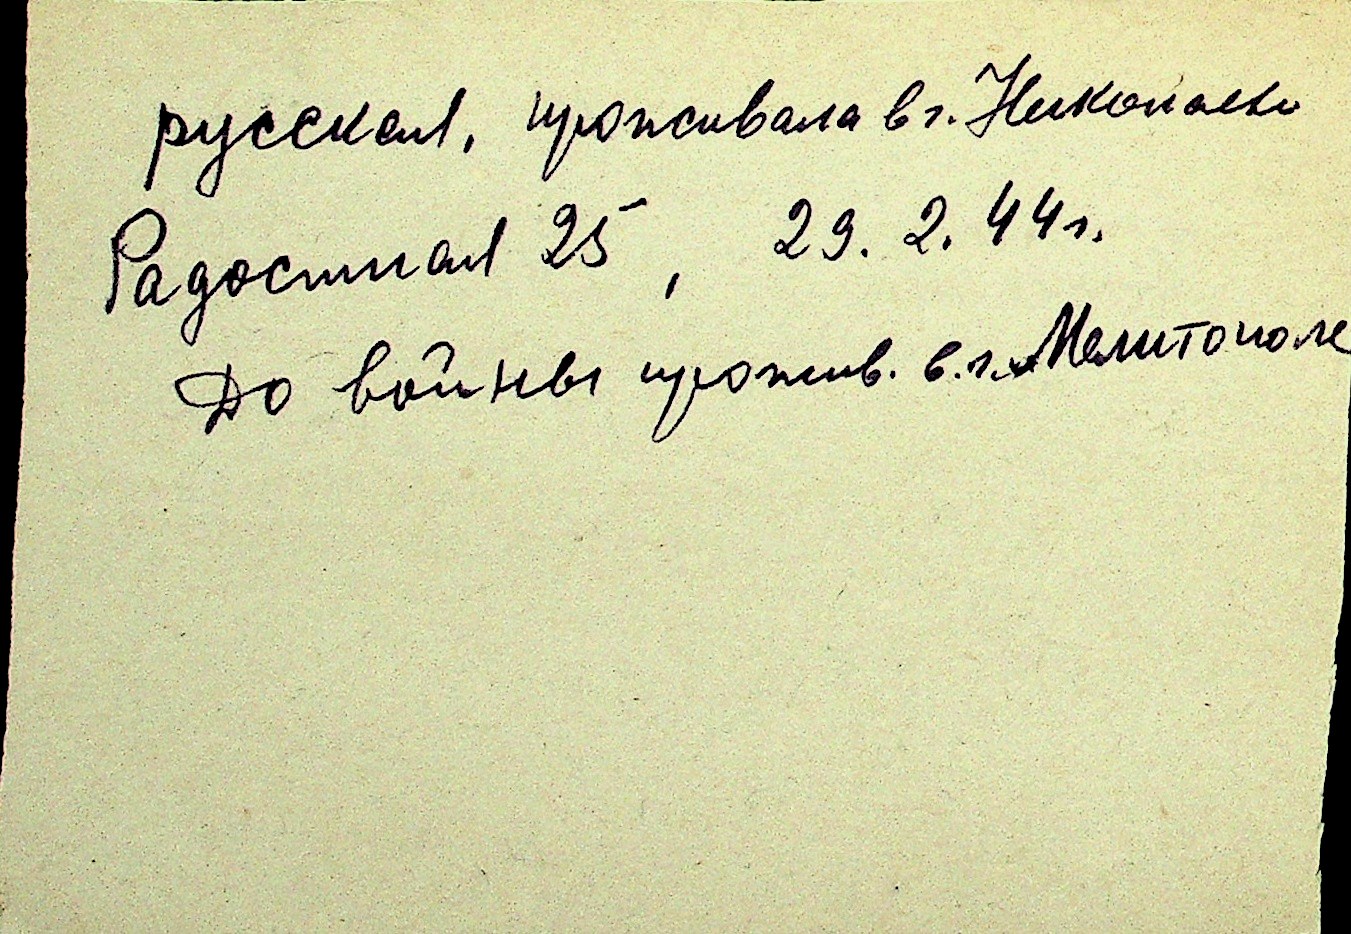 русская, проживала в г. Николаево
Радостная 25, 29. 2. 44 г.
До войны прожив. в. г. Мелитополе